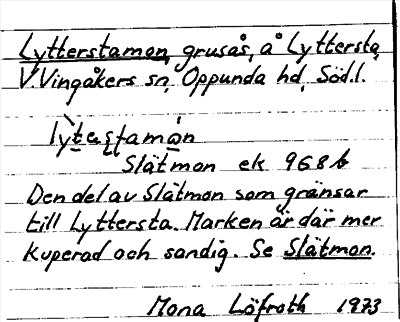 Lytterstamon, grusås, å Lyttersta,
V. Vingåkers sn, Oppunda hd, Söd.l.
lỳtesṭamón
Slätmon ek 968b
Den del av Slätmon som gränsar
till Lyttersta. Marken är där mer
kuperad och sandig. Se Slätmon.
Mona Löfroth 1973